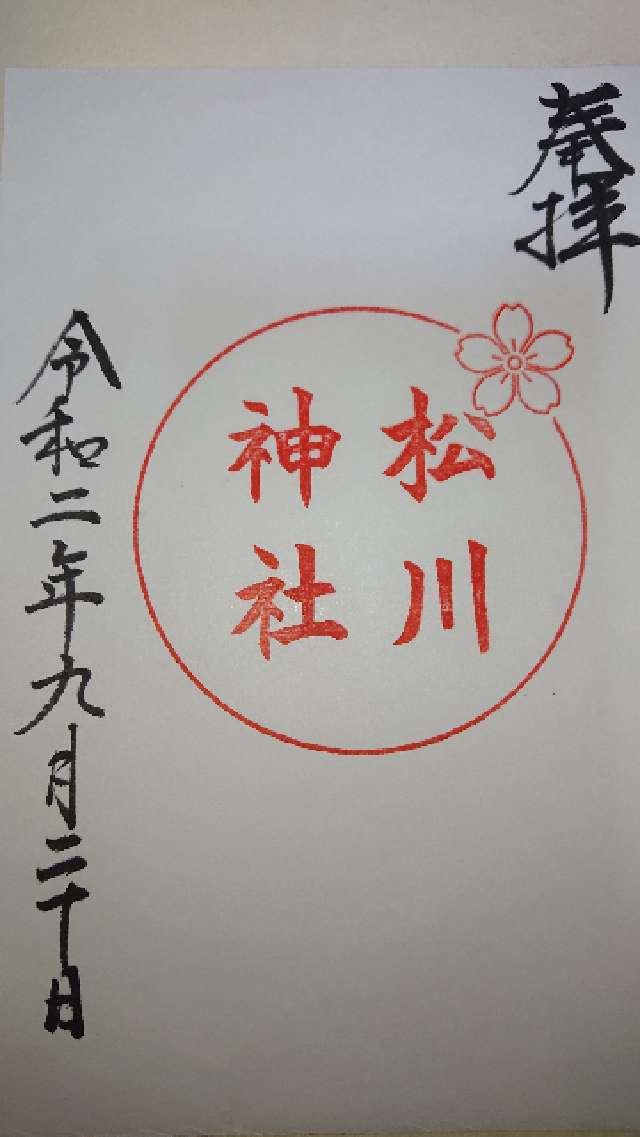 奉拝
松川
神社
令和二年九月二十日